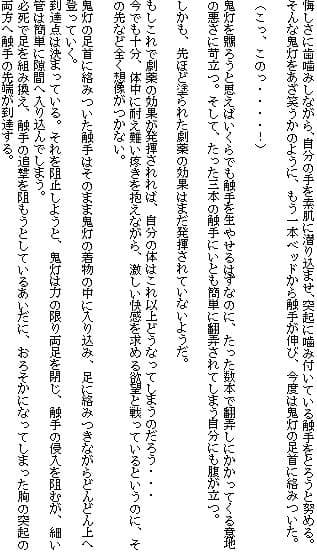 悔しさに歯噛みしながら、自分の手を素肌に滑り込ませ、突起に噛み付いている触手をとろうと努める。
そんな鬼灯をあざ笑うかのように、もう一本ベッドから触手が伸び、今度は鬼灯の足首に絡みついた。
（こっ、このっ・・・・！）
鬼灯を嬲ろうと思えばいくらでも触手を生やせるはずなのに、たった数本で翻弄しにかかってくる意地
の悪さに苛立つ。そして、たった三本の触手にいとも簡単に翻弄されてしまう自分にも腹が立つ。
しかも、先ほど塗られた劇薬の効果はまだ発揮されていないようだ。
もしこれで劇薬の効果が発揮されれば、自分の体はこれ以上どうなってしまうのだろう・・・
今でも十分、体中に耐え難い疼きを抱えながら、激しい快感を求める欲望と戦っているというのに、そ
の先など全く想像がつかない。
鬼灯の足首に絡みついた触手はそのまま鬼灯の着物の中に入り込み、足に絡みつきながらどんどん上へ
登っていく。
到達点は決まっている。それを阻止しようと、鬼灯は力の限り両足を閉じ、触手の侵入を阻むが、細い
管は簡単に隙間へ入り込んでしまう。
必死で足を組み換え、触手の追撃を阻もうとしているあいだに、おろそかになってしまった胸の突起の
両方へ触手の先端が到達する。